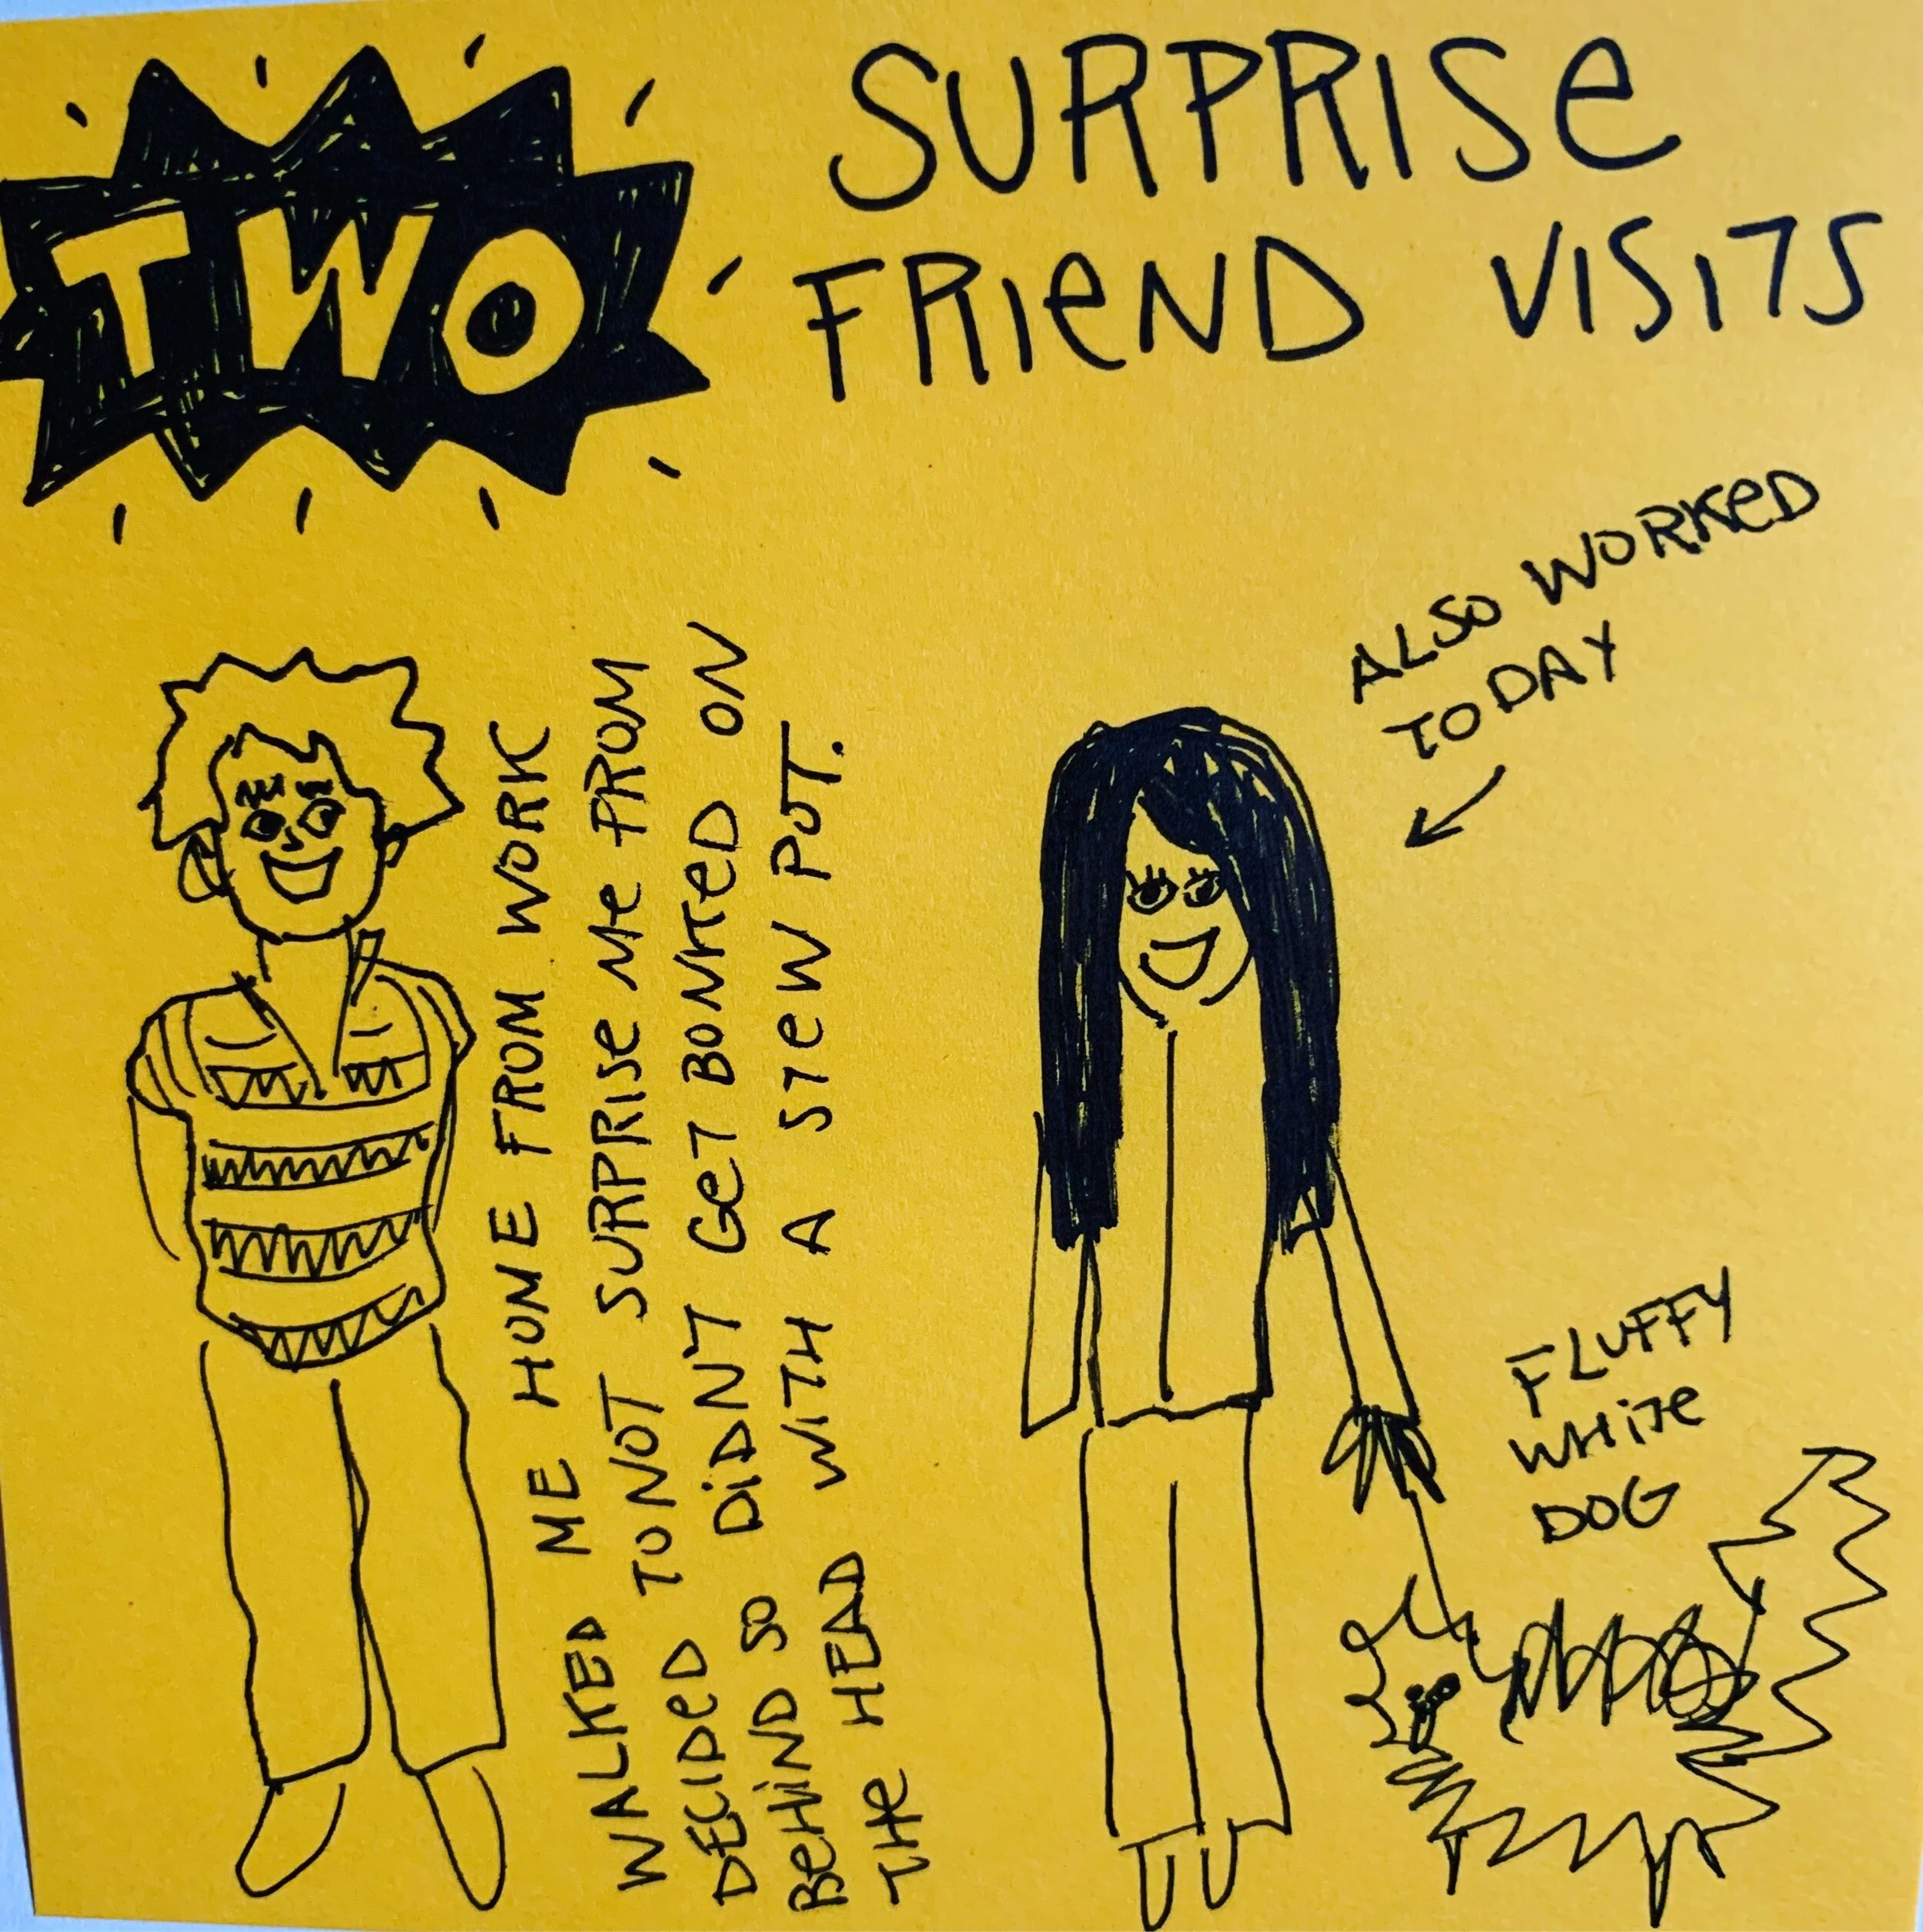 TWO
SURPRISE
FRIEND VISITS
WALKED ME HOME FROM WORK
DECIDED TO NOT SURPRISE ME FROM
BEHIND SO DIDN'T GET BONKED ON
THE HEAD WITH A STEW POT.
ALSO WORKED
TODAY
FLUFFY
WHITE
DOG